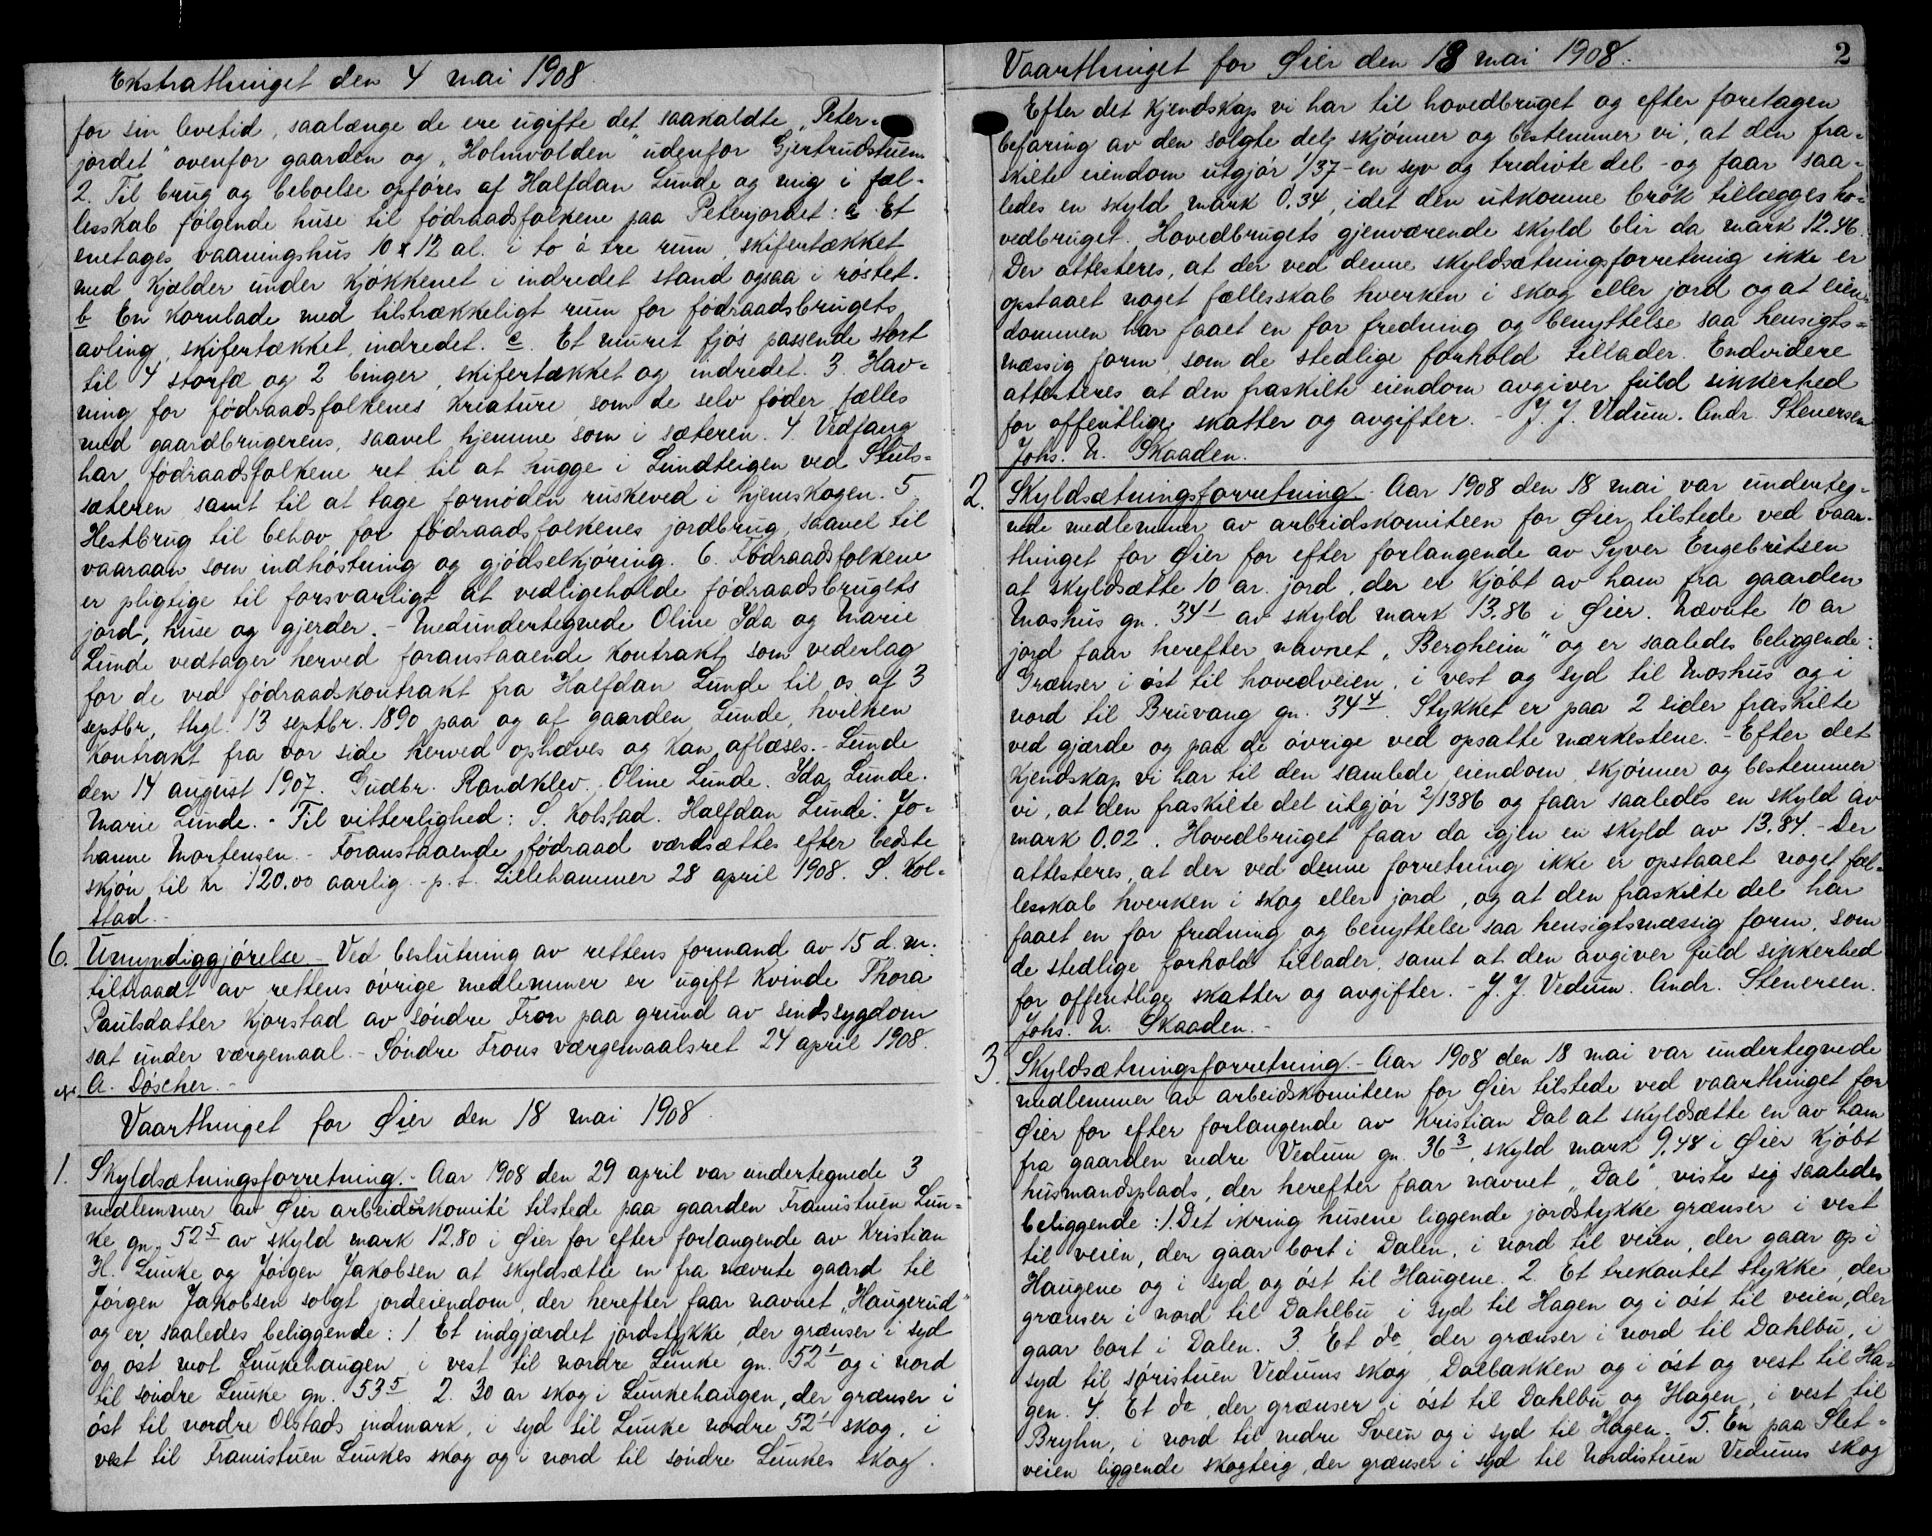 Ekstrathinget den 4 mai 1908.
for sin levetid, saalænge de ere ugifte det saakaldte „Peter-
jordet" ovenfor gaarden og „Holmvolden" udenfor Gjertrudstuen
2. Til brug og beboelse opføres af Halfdan Lunde og mig i fæl-
lesskab følgende huse til fødraadsfolkene paa Peterjordet: a Et
enetages vaaningshus 10 x 12 al. i to à tre rum, skifertækket
med kjælder under kjøkkenet i indredet stand ogsaa i røstet.
b En kornlade med tilstrækkeligt rum for fødraadsbrugets
avling, skifertækket, indredet. c. Et muret fjøs passende stort
til 4 storfæ og 2 binger, skifertækket og indredet. 3. Hav-
ning for fødraadsfolkenes kreature, som de selv føder, fælles
med gaardbrugerens, saavel hjemme som i sæteren. 4. Vedfang
har fødraadsfolkene ret til at hugge i Lundteigen ved Sluts-
sæteren samt til at tage fornøden ruskeved i hjemskogen. 5
Hestbrug til behov for fødraadsfolkenes jordbrug, saavel til
vaaraan som indhøstning og gjødselkjøring. 6. Fødraadsfolkene
er pligtige til forsvarligt at vedligeholde fødraadsbrugets
jord, huse og gjerder. - Medundertegnede Oline Ida og Marie
Lunde vedtager herved foranstaaende kontrakt som vederlag
for de ved fødraadkontrakt fra Halfdan Lunde til os af 3
septbr, thgl. 13 septbr. 1890 paa og af gaarden Lunde, hvilken
kontrakt fra vor side herved ophæves og kan aflæses. - Lunde
den 14 august 1907. Gudbr. Randklev. Oline Lunde. Ida Lunde.
Marie Lunde. - Til vitterlighed: S. Kolstad. Halfdan Lunde. Jo-
hanne Mortensen. - Foranstaaende fødraad værdsættes efter bedste
skjøn til kr 120.00 aarlig. - p. t. Lillehammer 28 april 1908. S. Kol-
stad. -
6. Umyndiggjørelse. - Ved beslutning av rettens formand av 15 d. m.
tiltraadt av rettens øvrige medlemmer er ugift kvinde Thora
Paulsdatter Kjorstad av søndre Fron paa grund av sindssygdom
sat under værgemaal. - Søndre Frons værgemaalsret 24 april 1908.
A. Døscher. -
Vaarthinget for Øier den 18 mai 1908.
1. Skyldsætningsforretning. - Aar 1908 den 29 april var undertegnede 3
medlemmer av Øier arbeiderkomité tilstede paa gaarden Framistuen Lun-
ke gn. 52 5 av skyld mark 12.80 i Øier for efter forlangende av Kristian
H. Lunke og Jørgen Jakobsen at skyldsætte en fra nævnte gaard til
Jørgen Jakobsen solgt jordeiendom, der herefter faar navnet „Haugerud"
og er saaledes beliggende: 1. Et indgjærdet jordstykke, der grænser i syd
og øst mot Lunkehaugen, i vest til nordre Lunke gn. 52 1 og i nord
til søndre Lunke gn. 53 5. 2. 30 ar skog i Lunkehaugen, der grænser i
øst til nordre Olstads indmark, i syd til Lunke nordre 52 1 skog, i
vest til Framistuen Lunkes skog og i nord til søndre Lunkes skog.
Vaarthinget for Øier den 18 mai 1908. 2
Efter det kjendskap vi har til hovedbruget og efter foretagen
befaring av den solgte del, skjønner og bestemmer vi, at den fra-
skilte eiendom utgjør 1/37 - en syv og tredivte del - og faar saa-
ledes en skyld mark 0.34, idet den utkomne brøk tillægges ho-
vedbruget. Hovedbrugets gjenværende skyld blir da mark 12.46.
Der attesteres, at der ved denne skyldsætningsforretning ikke er
opstaaet noget fællesskab hverken i skog eller jord og at eien-
dommen har faaet en for fredning og benyttelse saa hensigts-
mæssig form, som de stedlige forhold tillader. Endvidere
attesteres at den fraskilte eiendom avgiver fuld sikkerhed
for offentlige skatter og avgifter. - J. J. Vedum. Andr. Stenersen
Johs. N. Skaaden.
2. Skyldsætningsforretning. Aar 1908 den 18 mai var underteg-
nede medlemmer av arbeidskomiteen for Øier tilstede ved vaar-
thinget for Øier for efter forlangende av Syver Engebritsen
at skyldsætte 10 ar. jord, der er kjøbt av ham fra gaarden
Moshus gn. 34 1 av skyld mark 13.86 i Øier. Nævnte 10 ar
jord faar herefter navnet „Bergheim" og er saaledes beliggende:
Grænser i øst til hovedveien, i vest og syd til Moshus og i
nord til Bruvang gn. 34 4. Stykket er paa 2 sider fraskilte
ved gjærde og paa de øvrige ved opsatte mærkestene. - Efter det
kjendskap vi har til den samlede eiendom skjønner og bestemmer
vi, at den fraskilte del utgjør 2/1386 og faar saaledes en skyld av
mark 0.02. Hovedbruget faar da igjen en skyld av 13.84. - Der
attesteres, at der ved denne forretning ikke er opstaaet noget fæl-
lesskab hverken i skog eller jord, og at den fraskilte del har
faaet en for fredning og benyttelse saa hensigtsmæssig form, som
de stedlige forhold tillader, samt at den avgiver fuld sikkerhed
for offentlige skatter og avgifter. - J. J. Vedum. Andr. Stenersen.
Johs. N. Skaaden. -
3. Skyldsætningsforretning. - Aar 1908 den 18 mai var undertegnede
medlemmer av arbeidskomiteen for Øier tilstede ved vaarthinget for
Øier for efter forlangende av Kristian Dal at skyldsætte en av ham
fra gaarden nedre Vedum gn. 36 3, skyld mark 9.48 i Øier kjøbt
husmandsplads, der herefter faar navnet „Dal", viste sig saaledes
beliggende: 1. Det ikring husene liggende jordstykke grænser i vest
til veien, der gaar bort i Dalen, i nord til veien, der gaar op i
Haugene og i syd og øst til Haugene. 2. Et trekantet stykke, der
grænser i nord til Dahlbu, i syd til Hagen og i øst til veien, der
gaar bort i Dalen. 3. Et do, der grænser i nord til Dahlbu, i
syd til søristuen Vedums skog, Dalbakken og i øst og vest til Ha-
gen. 4. Et do, der grænser i øst til Dahlbu og Hagen, i vest til
Bryhn, i nord til nedre Sveen og i syd til Hagen. 5. En paa Slet-
veien liggende skogteig, der grænser i syd til Nordistuen Vedums skog